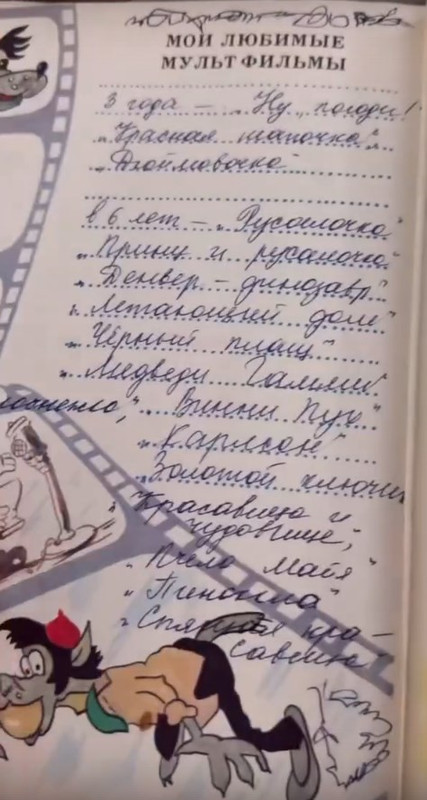 МОИ ЛЮБИМЫЕ
МУЛЬТФИЛЬМЫ
3 года – „Ну, погоди!
„Красная шапочка"
„Дюймовочка"
в 6 лет – „Русалочка"
„Принц и русалочка"
„Денвер – динозавр"
„Летающий дом"
„Чёрный плащ"
„Медведи Гамми"
„Винни Пух"
„Карлсон"
„Золотой ключик
„Красавица и
чудовище",
„Пчела Майя"
„Пиноккио"
„Спящая кра-
савица"